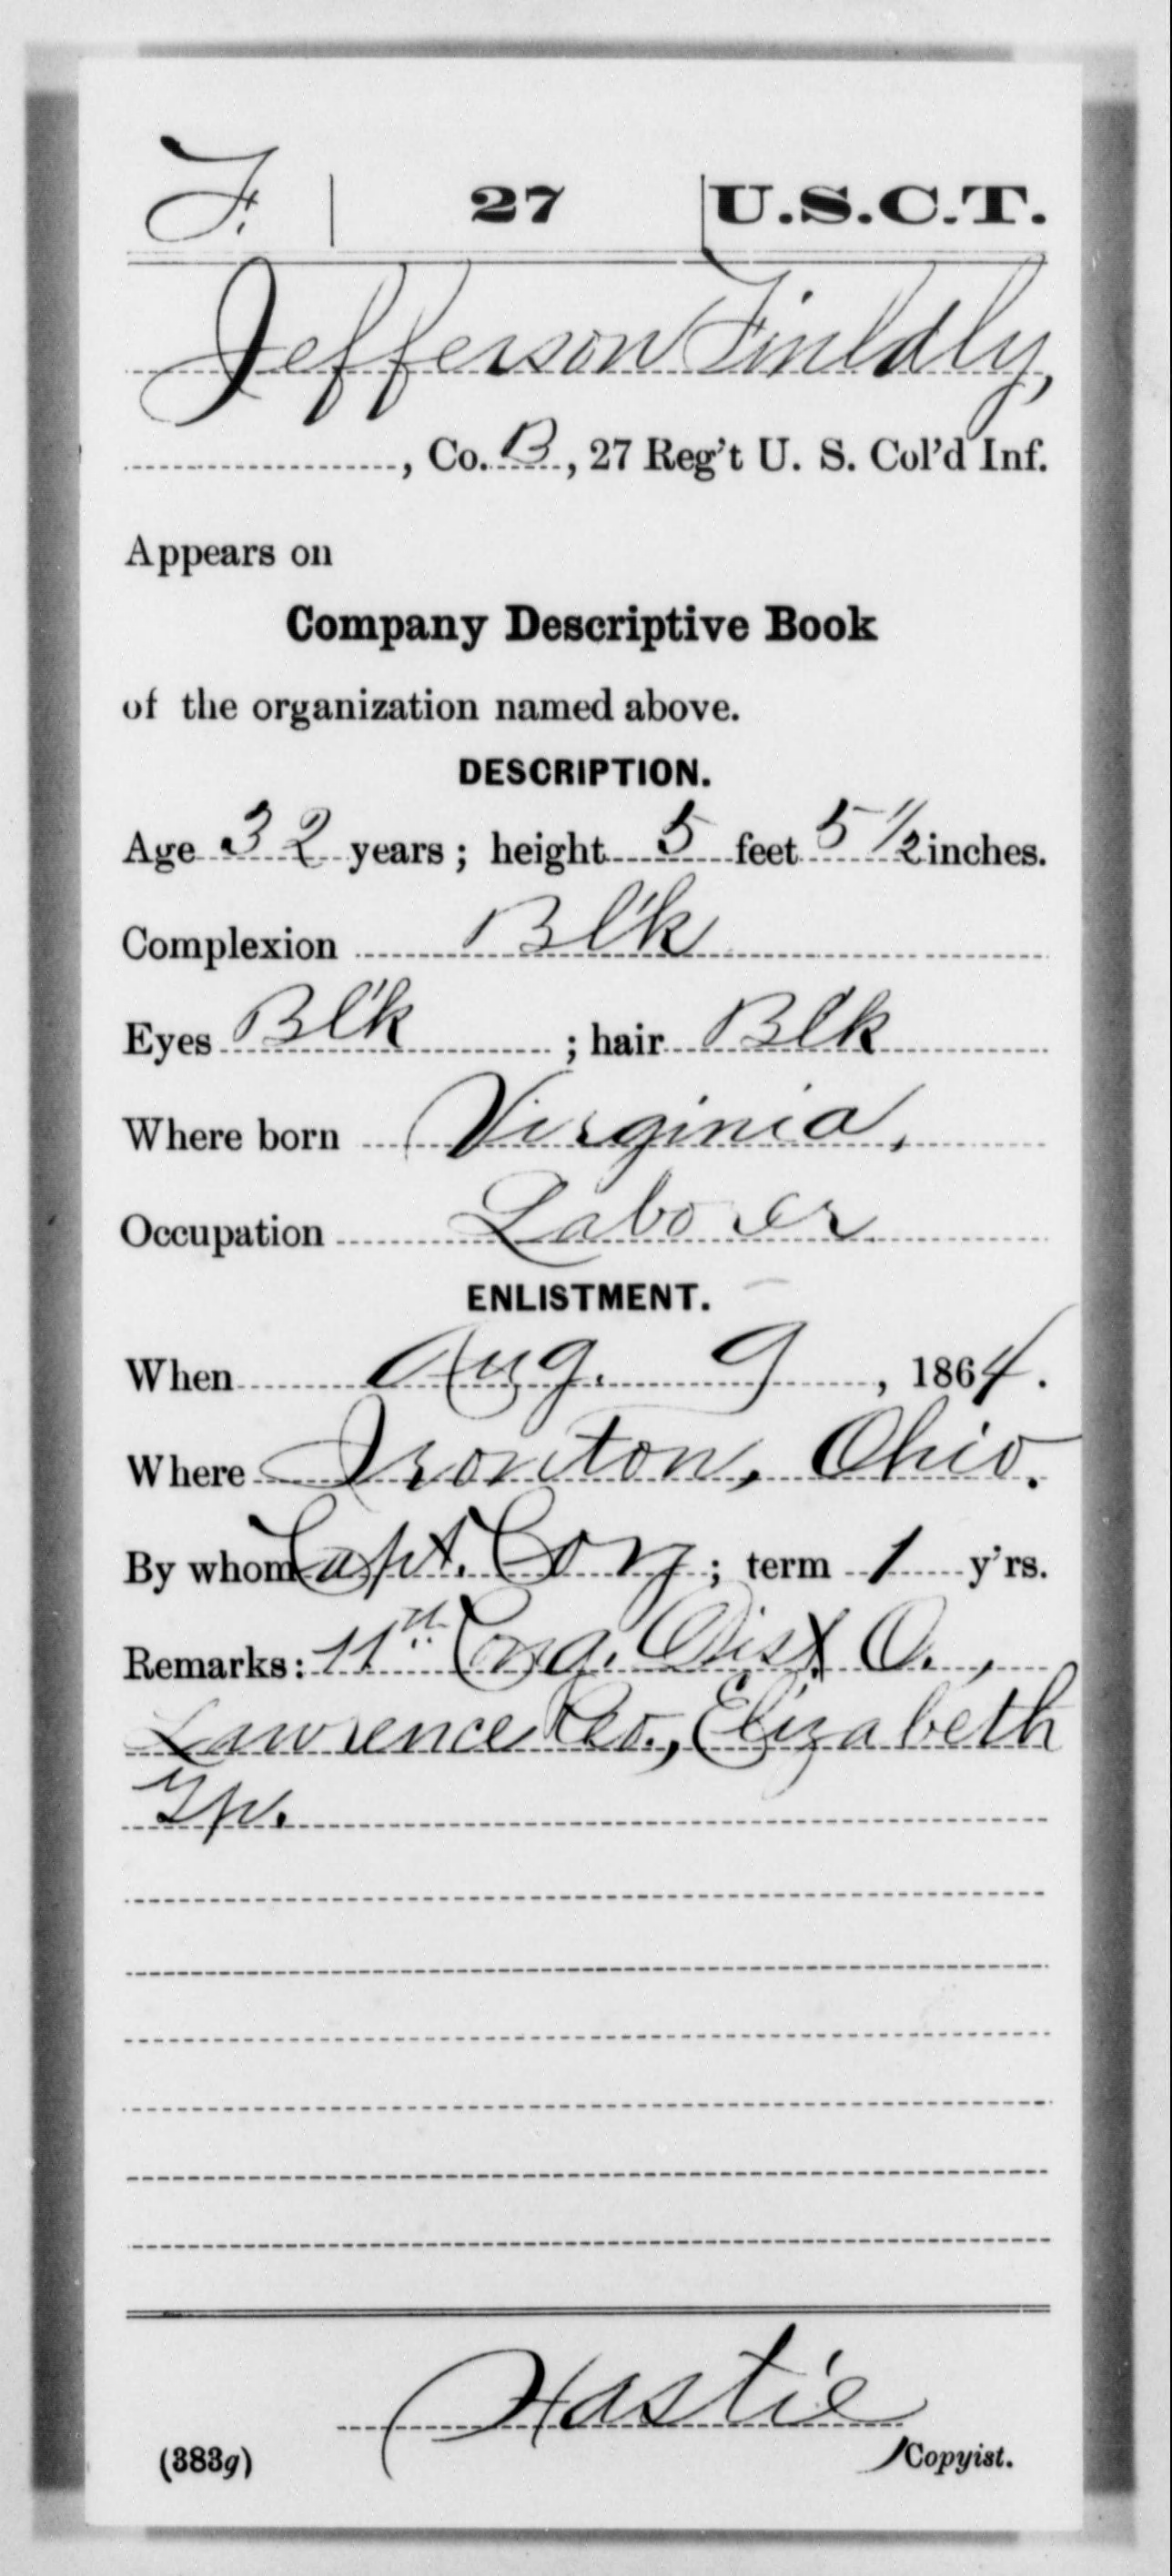 F. | 27 | U.S.C.T.
Jefferson Finldly,
, Co. B, 27 Reg't U. S. Col'd Inf.
Appears on
Company Descriptive Book
of the organization named above.
DESCRIPTION.
Age 32 years; height 5 feet 5 1/2 inches.
Complexion Bl'k
Eyes Bl'k ; hair Blk
Where born Virginia,
Occupation Laborer
ENLISTMENT.
When Aug. 9, 1864.
Where Ironton, Ohio.
By whom Capt. Cory; term 1 y'rs.
Remarks: 11th Cong. Dist. O.,
Lawrence Co., Elizabeth
Tp.
Hastie
(383g) Copyist.